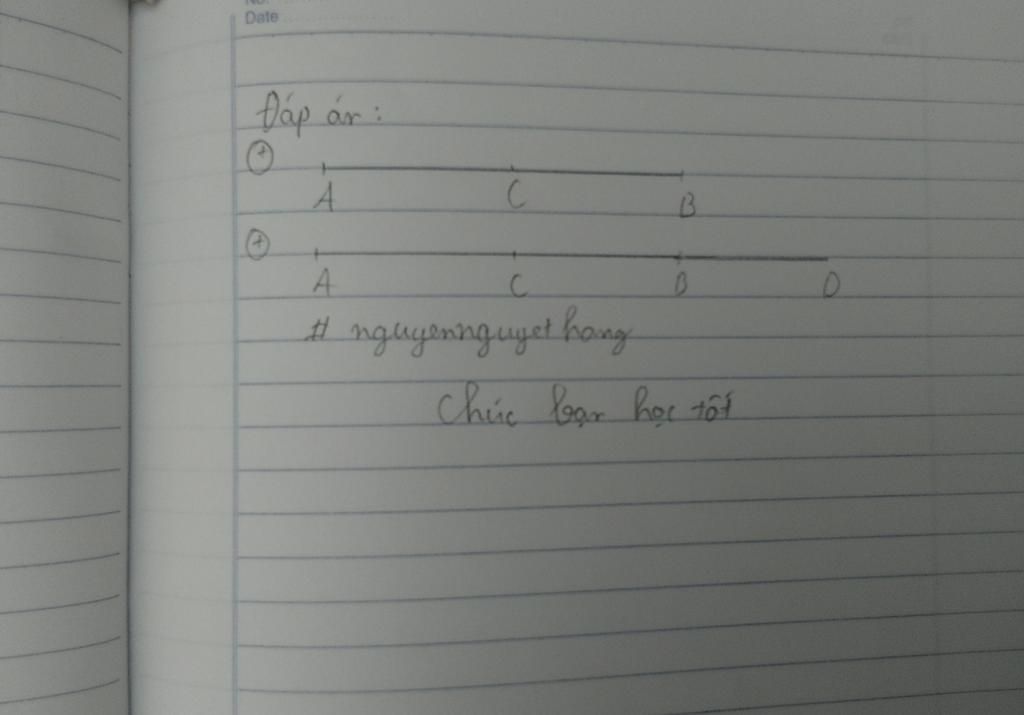 No.
Date
Đáp án:
(+)
A C B
(+)
A C B D
# nguyennguyethang
Chúc bạn học tốt